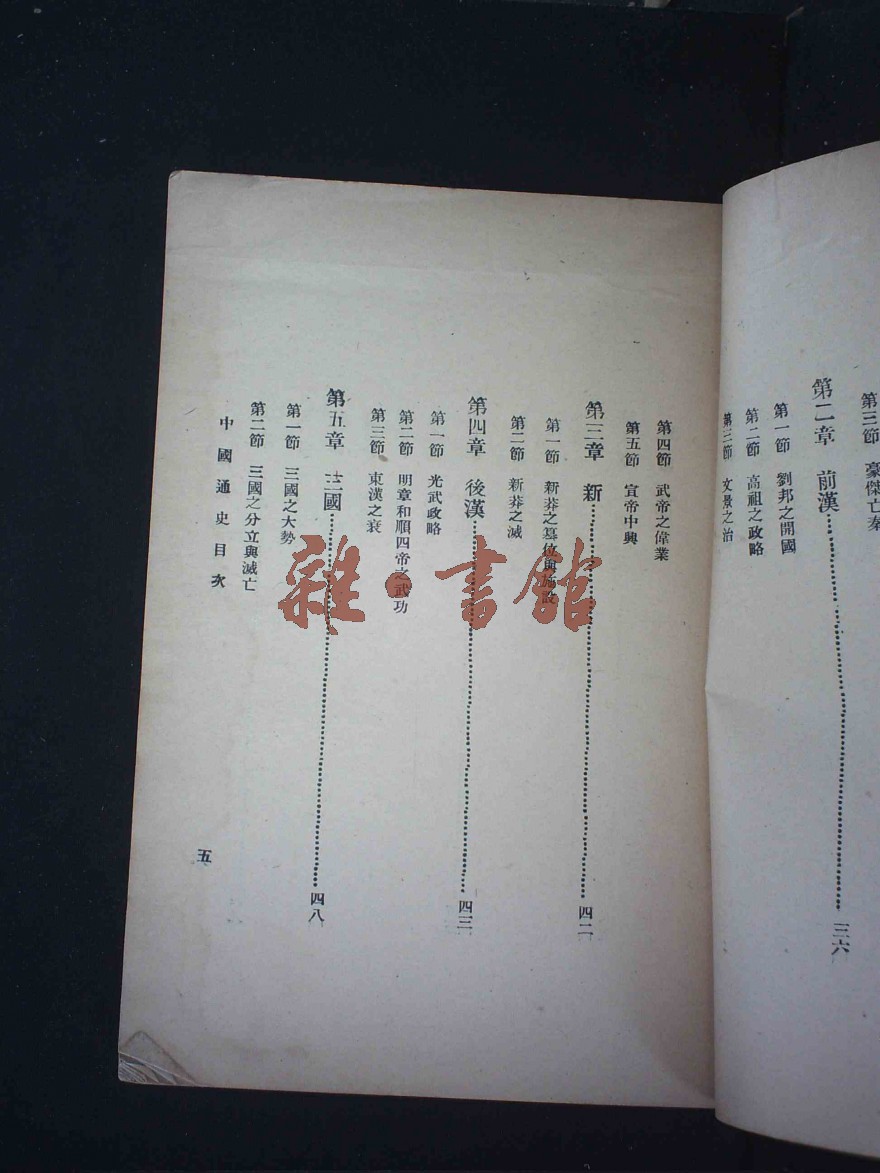 第三節　豪傑亡秦
第二章　前漢……三六
第一節　劉邦之開國
第二節　高祖之政略
第三節　文景之治
第四節　武帝之偉業
第五節　宣帝中興
第三章　新……四二
第一節　新莽之篡位與施設
第二節　新莽之滅
第四章　後漢……四三
第一節　光武政略
第二節　明章和順四帝之武功
第三節　東漢之衰
第五章　三國……四八
第一節　三國之大勢
第二節　三國之分立與滅亡
中國通史目次
五
雜·書館